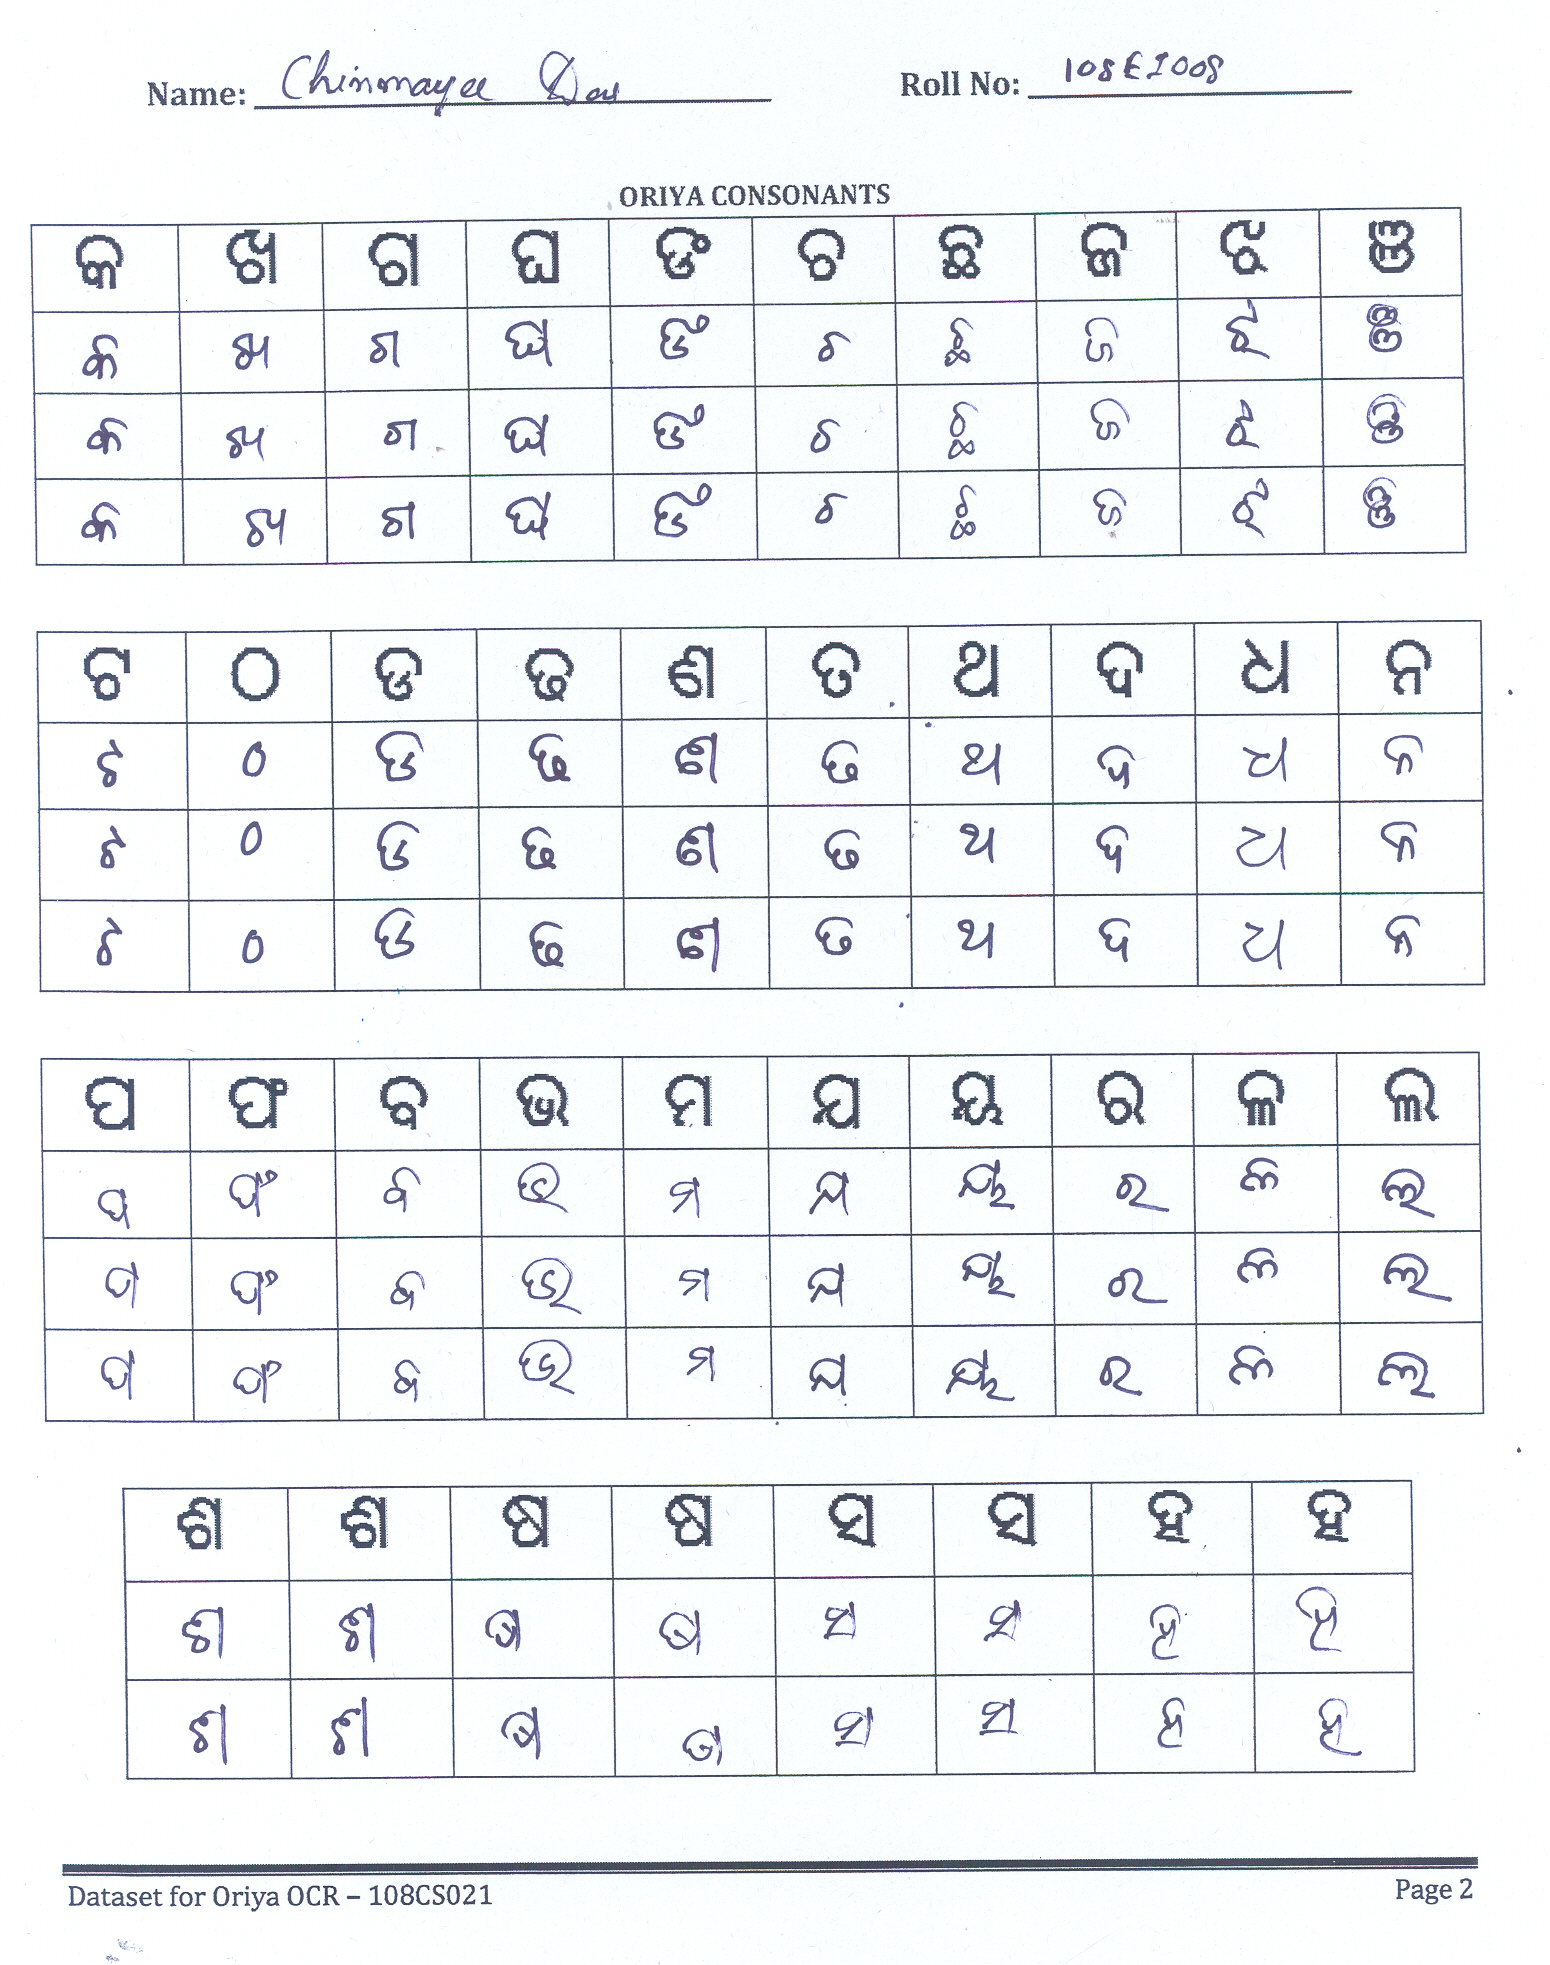 Name: Chinmayee Das Roll No: 108EI008
ORIYA CONSONANTS
କ ଖ ଗ ଘ ଙ ଚ ଛ ଜ ଝ ଞ
କ ଖ ଗ ଘ ଙ ଚ ଛ ଜ ଝ ଞ
କ ଖ ଗ ଘ ଙ ଚ ଛ ଜ ଝ ଞ
କ ଖ ଗ ଘ ଙ ଚ ଛ ଜ ଝ ଞ
ଟ ଠ ଡ ଢ ଣ ତ ଥ ଦ ଧ ନ
ଟ ଠ ଡ ଢ ଣ ତ ଥ ଦ ଧ ନ
ଟ ଠ ଡ ଢ ଣ ତ ଥ ଦ ଧ ନ
ଟ ଠ ଡ ଢ ଣ ତ ଥ ଦ ଧ ନ
ପ ଫ ବ ଭ ମ ଯ ୟ ର ଳ ଲ
ପ ଫ ବ ଭ ମ ଯ ୟ ର ଳ ଲ
ପ ଫ ବ ଭ ମ ଯ ୟ ର ଳ ଲ
ପ ଫ ବ ଭ ମ ଯ ୟ ର ଳ ଲ
ଶ ଶ ଷ ଷ ସ ସ ହ ହ
ଶ ଶ ଷ ଷ ସ ସ ହ ହ
ଶ ଶ ଷ ଷ ସ ସ ହ ହ
Dataset for Oriya OCR – 108CS021 Page 2